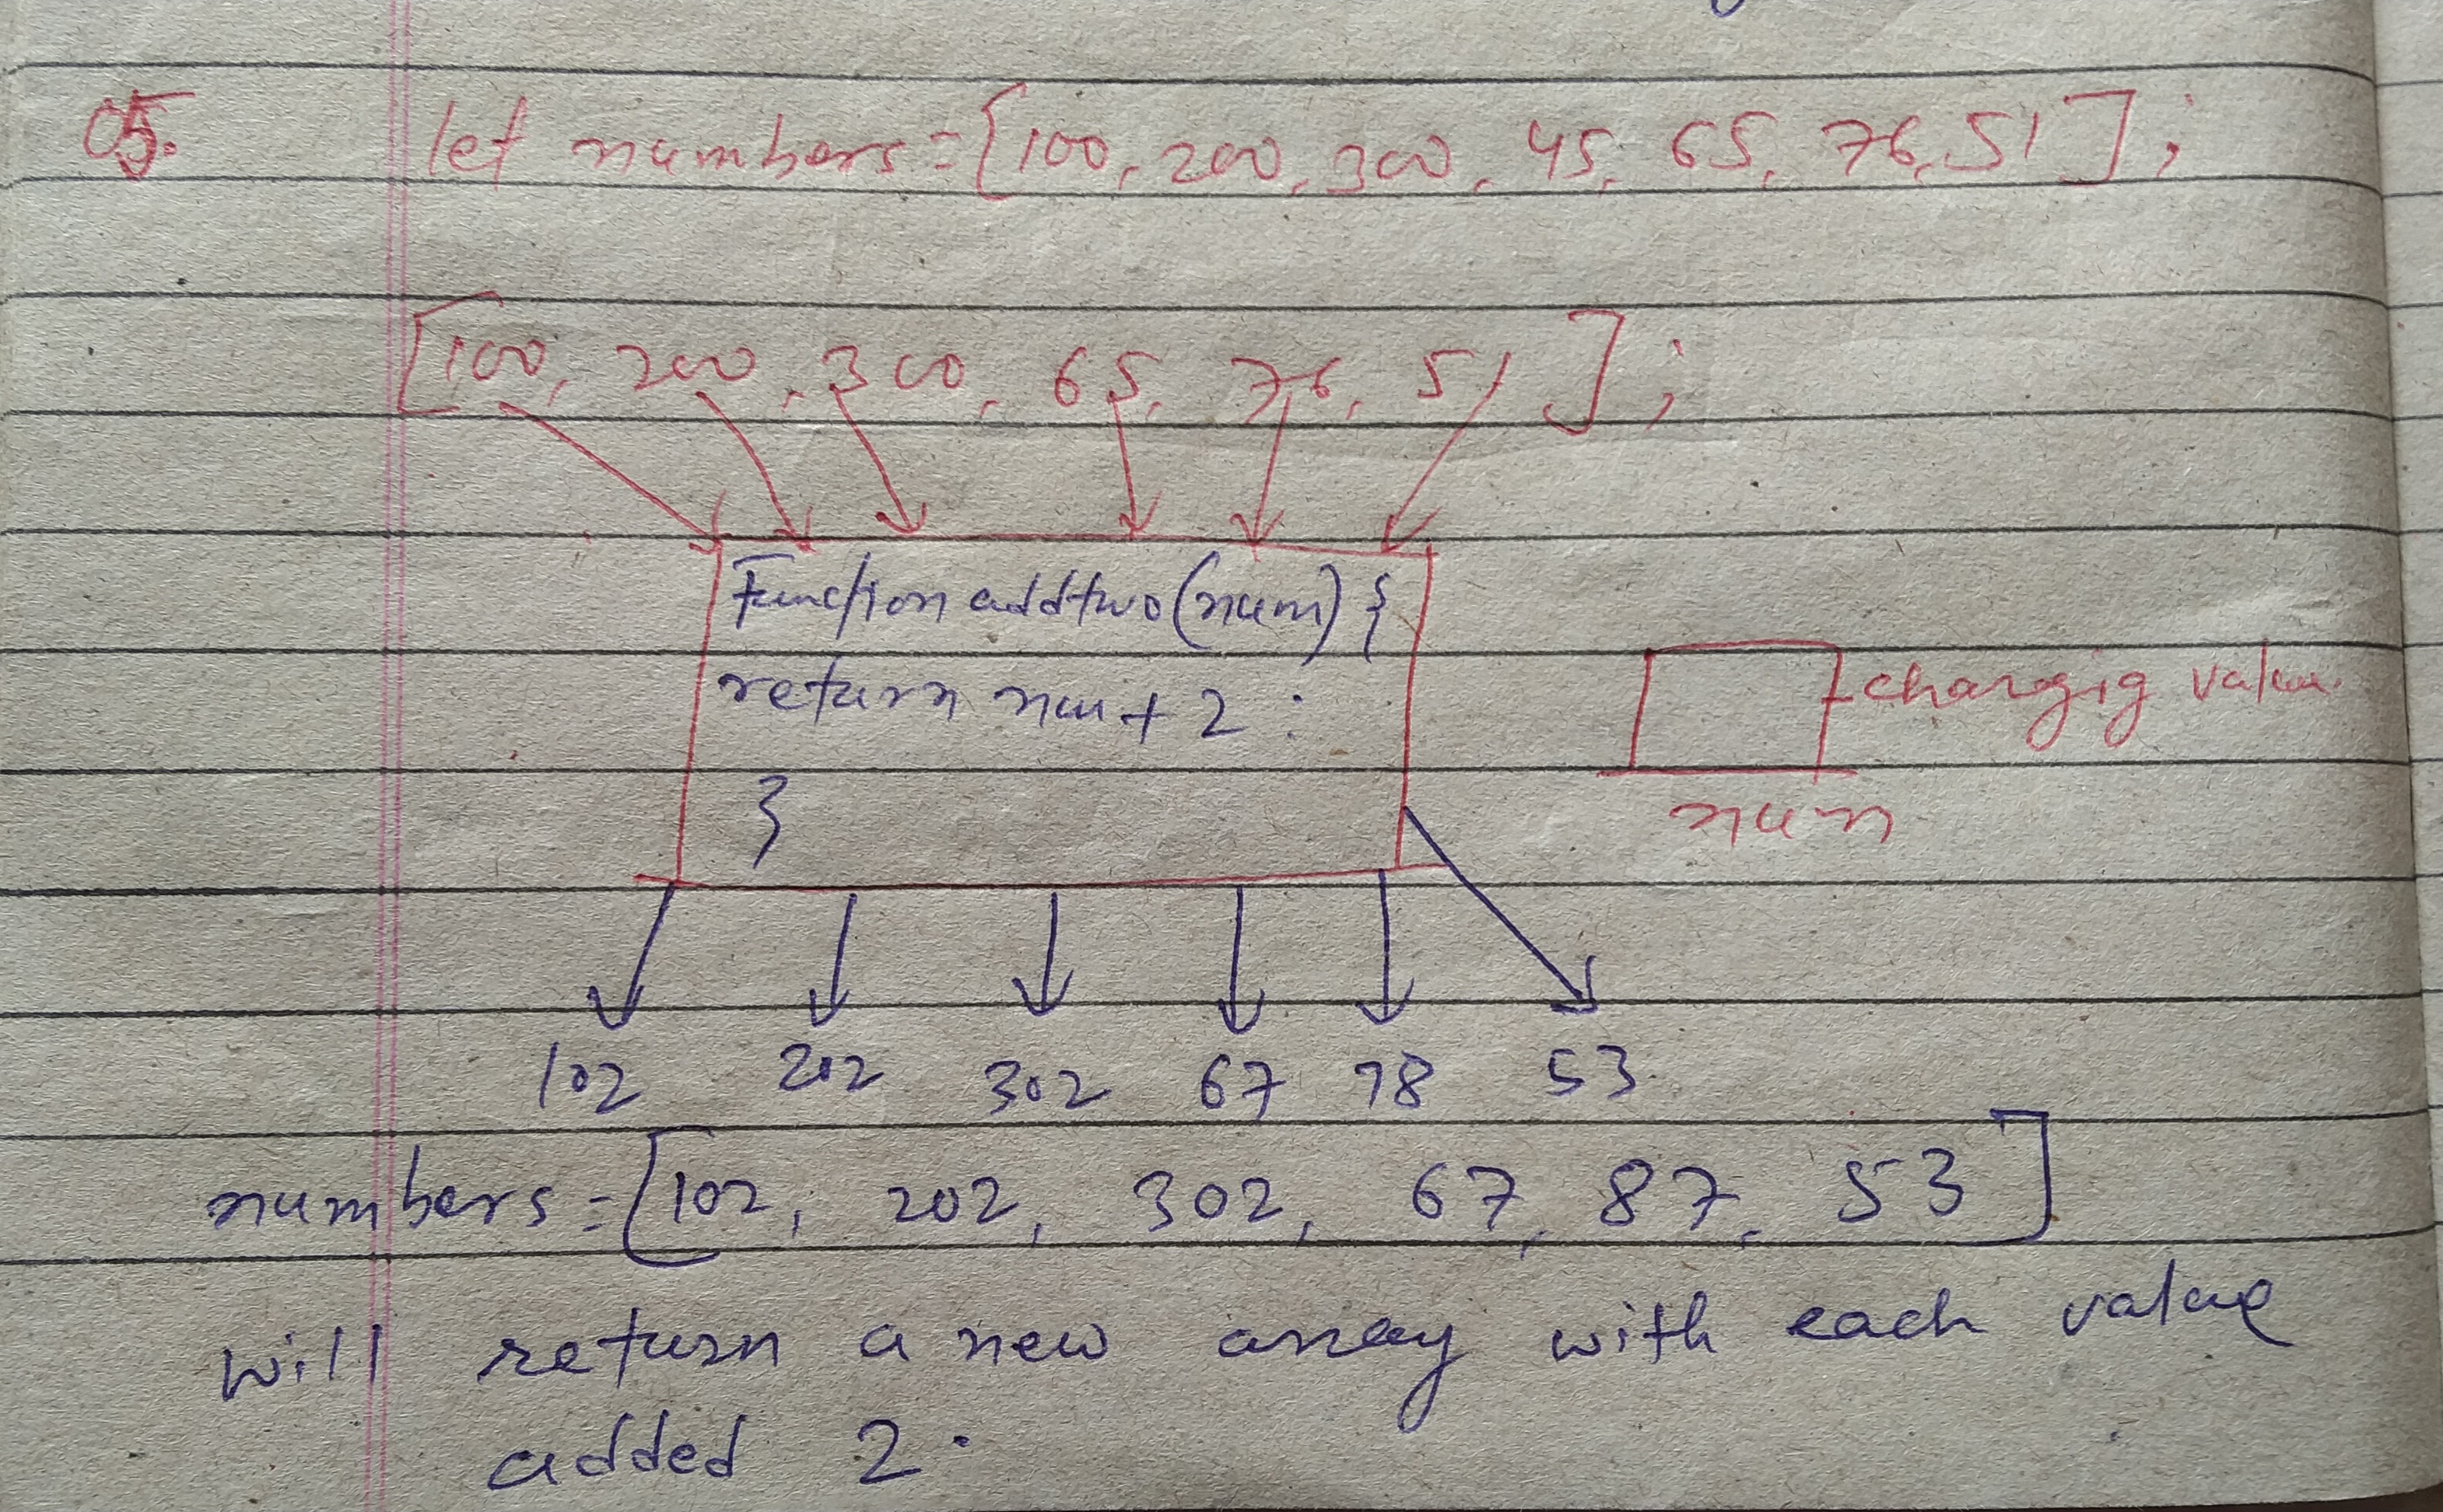 05. let numbers=[100, 200, 300, 45, 65, 76, 51];
[100, 200, 300, 65, 76, 51];
Function addtwo(num) {
return num + 2 :
}
changig value.
num
102 202 302 67 78 53
numbers=[102, 202, 302, 67, 87, 53]
will return a new array with each value
added 2.